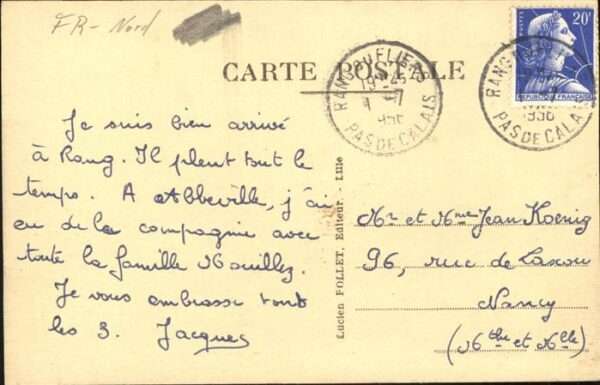 FR - Nord
CARTE POSTALE
RANG DU FLIERS
19-45
4 -7
1956
PAS DE CALAIS
POSTES
20F
REPUBLIQUE FRANÇAISE
RANG
1956
PAS DE CALAIS
Je suis bien arrivé
à Rang. Il pleut tout le
temps. A Abbeville, j'ai
eu de la compagnie avec
toute la famille Mouillez.
Je vous embrasse tous
les 3. Jacques
Lucien FOLLET, Editeur. - Lille
Mr et Mme Jean Koenig
96, rue de Laxou
Nancy
(Mthe et Mlle)